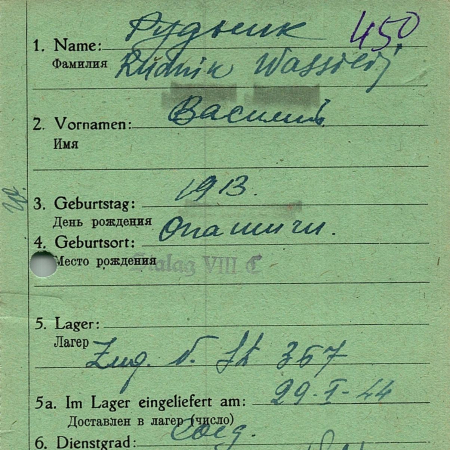 Рудник 450
1. Name: Rudnik Wassilij
Фамилия
2. Vornamen: Василий
Имя
3. Geburtstag: 1913.
День рождения
4. Geburtsort:
Место рождения
Stalag VIII C
5. Lager:
Лагер
Zug. v. 367
5a. Im Lager eingeliefert am: 29-I-44
Доставлен в лагер (число)
6. Dienstgrad: Sold.